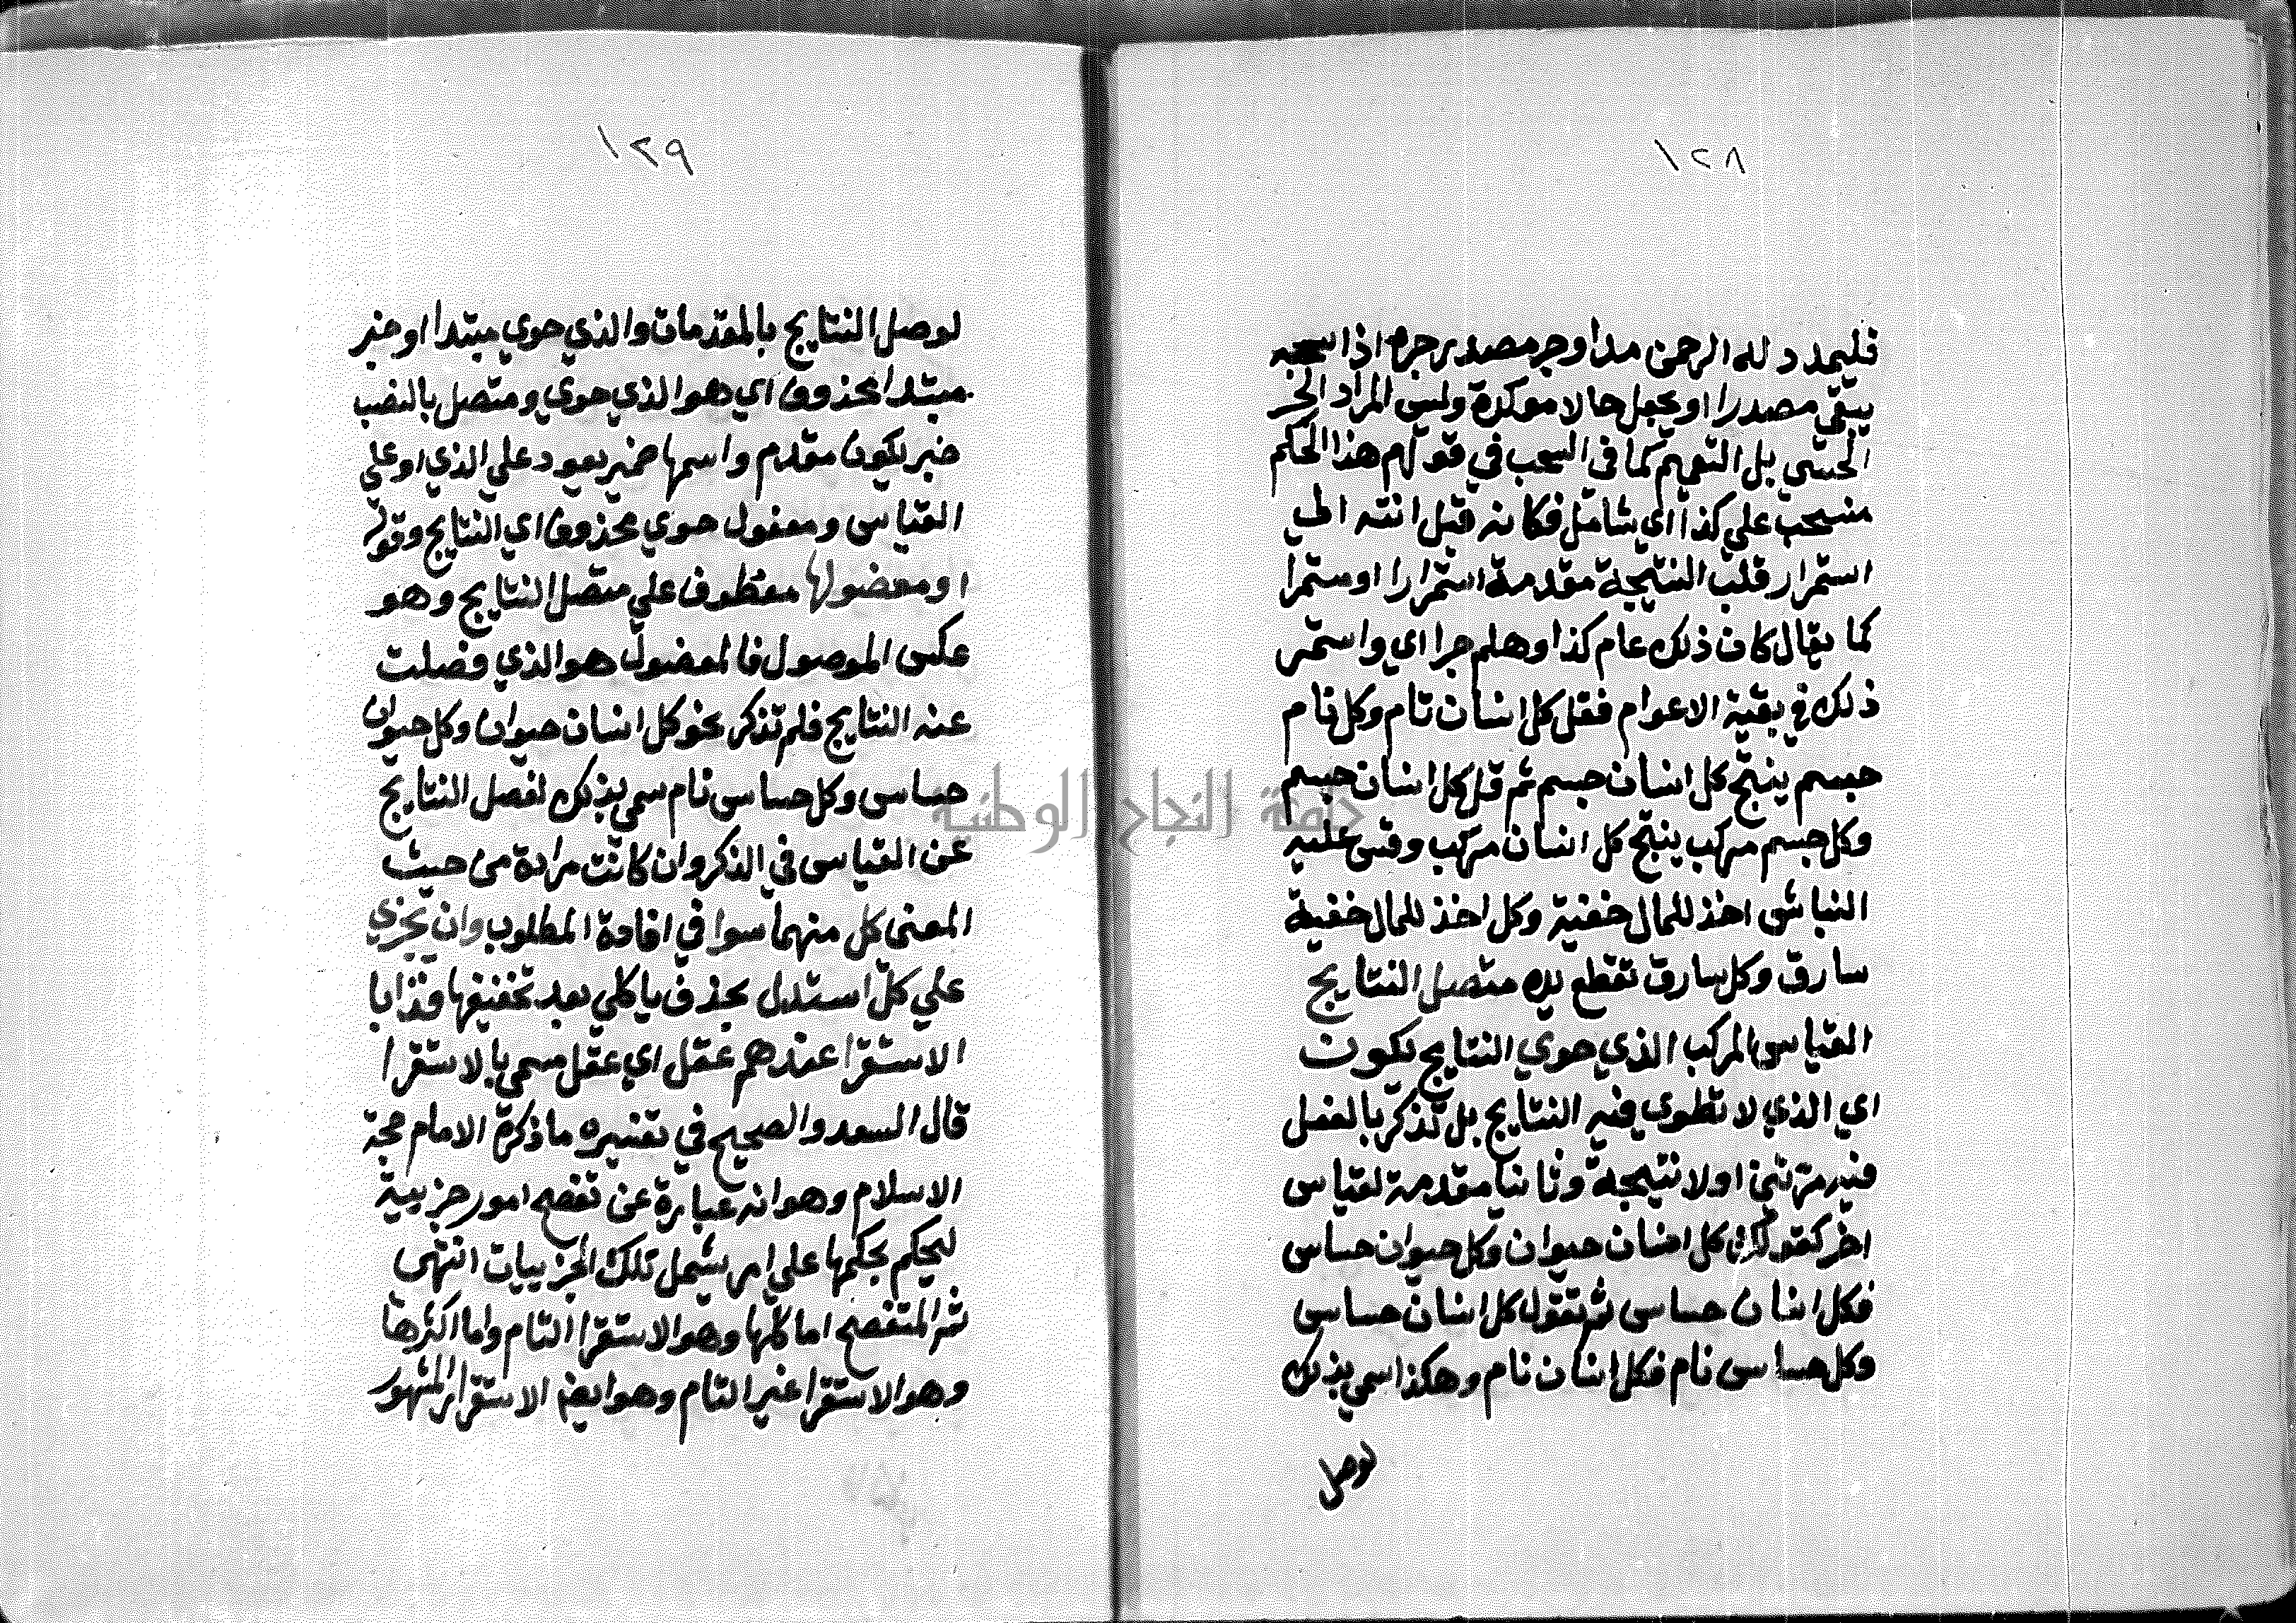 ١٢٨
فليمدد له الرحمن مدا وجر مصدر جره اذا سحبه
يبقى مصدرا او يجعل حالا موكدة وليس المراد الجر
الحسي بل التعميم كما في السحب في قولهم هذا الحكم
منسحب على كذا اي شامل فكانه قيل انته الي
استمرار قلب النتيجة مقدمة استمرارا او مستمرا
كما يقال كان ذلك عام كذا وهلم جرا اي واستمر
ذلك في بقية الاعوام فقل كل انسان نام وكل نام
جسم ينتج كل انسان جسم ثم قل كل انسان جسم
وكل جسم مركب ينتج كل انسان مركب وقس عليه
النباش اخذ للمال خفية وكل اخذ للمال خفية
سارق وكل سارق تقطع يده متصل النتايج
القياس المركب الذي حوي النتايج يكون
اي الذي لا تطوي فيه النتايج بل تذكر بالفعل
فيه مرتين اولا نتيجة وثانيا مقدمة لقياس
اخر كقولك كل انسان حيوان وكل حيوان حساس
فكل انسان حساس ثم تقول كل انسان حساس
وكل حساس نام فكل انسان نام وهكذا سمي بذلك
لوصل
١٢٩
لوصل النتايج بالمقدمات والذي حوي مبتدا او خبر
مبتدا محذوف اي هو الذي حوي ومتصل بالنصب
خبر يكون مقدم واسمها ضمير يعود علي الذي او علي
القياس ومفعول حوي محذوف اي النتايج وقوله
او مفصولها معطوف علي متصل النتايج وهو
عكس الموصول فالمفصول هو الذي فصلت
عنه النتايج فلم تذكر نحو كل انسان حيوان وكل حيوان
حساس وكل حساس نام سمي بذلك لفصل النتايج
عن القياس في الذكر وان كانت مرادة من حيث
المعنى كل منهما سوا في افادة المطلوب وان بجزي
علي كل استدل بحذف يا كلي بعد تخفيفها فذا با
الاستقرا عندهم عقل اي عقل مسمي بالاستقرا
قال السعد والصحيح في تفسيره ما ذكره الامام حجة
الاسلام وهو انه عبارة عن تفصح امور جزيية
ليحكم بحكمها علي امر يشمل تلك الجزييات انتهى
ثم المتفصح اما كلها وهو الاستقرا التام واما اكثرها
وهو الاستقرا غير التام وهو ايض الاستقرا المشهور
جامعة النجاح الوطنية